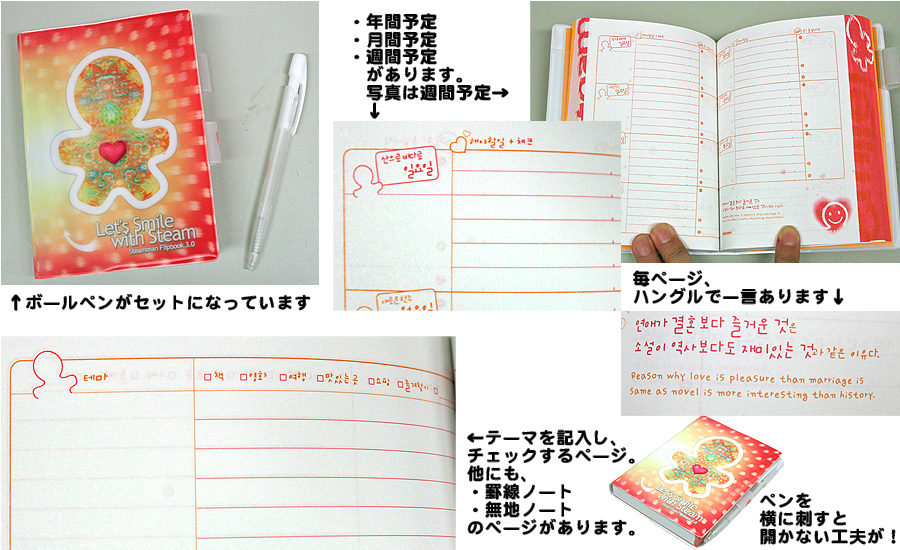 Let's Smile
with Steam
Steamman Flipbook 3.0
↑ボールペンがセットになっています
・年間予定
・月間予定
・週間予定
があります。
写真は週間予定→
↓
해야할일 + 체크
산으로 바다로
일요일
毎ページ、
ハングルで一言あります↓
연애가 결혼보다 즐거운 것은
소설이 역사보다도 재미있는 것과 같은 이유다.
Reason why love is pleasure than marriage is
same as novel is more interesting than history.
테마
□책 □영화 □여행 □맛있는곳 □쇼핑
←テーマを記入し、
チェックするページ。
他にも、
・罫線ノート
・無地ノート
のページがあります。
Let's Smile
with Steam
ペンを
横に刺すと
開かない工夫が！